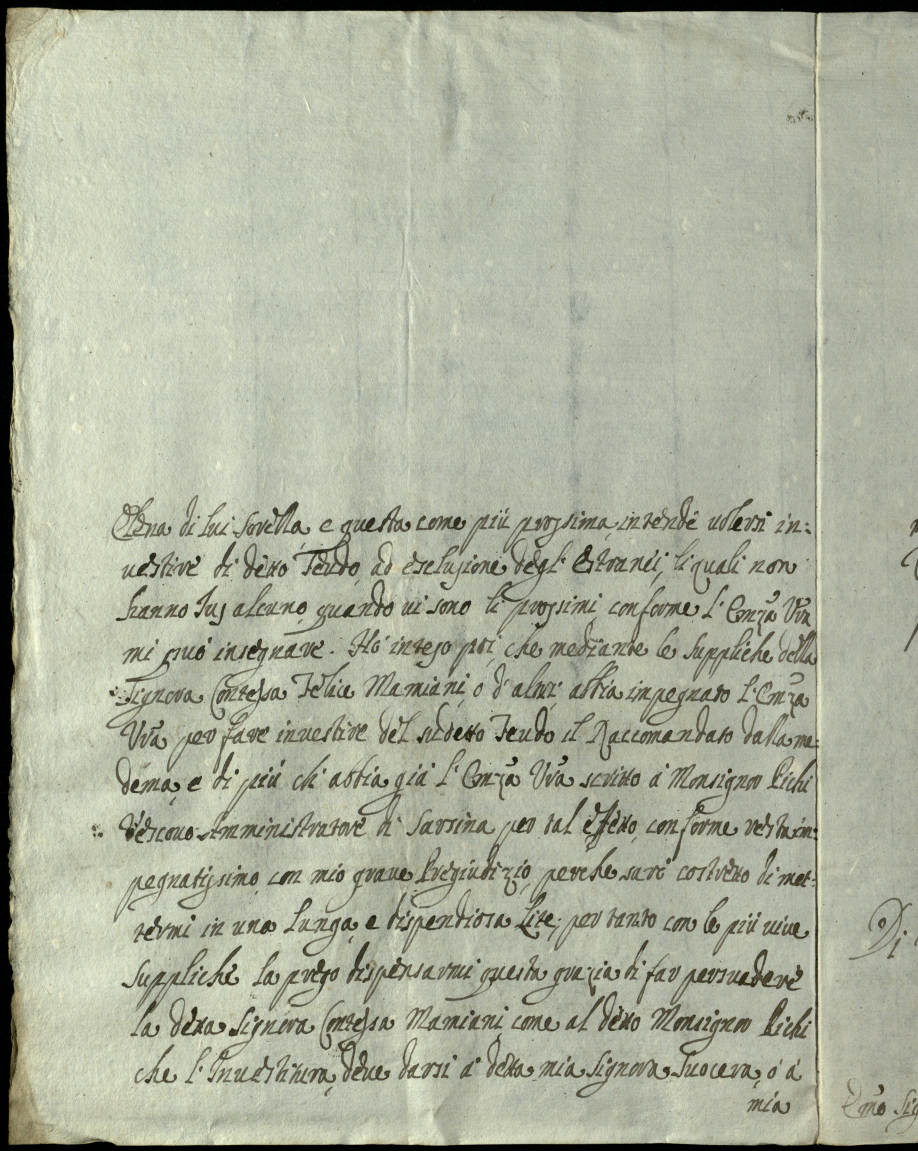 Elena di lui Sorella e questa come più prossima intende volersi in:
vestire di detto Feudo ad esclusione degl'Estranei, li quali non
hanno Jus alcuno quando vi sono li prossimi conforme l'Emza Vra
mi può insegnare. Hò inteso poi, che mediante le Suppliche della
Signora Contessa Felice Mamiani, ò d'altri abbia impegnato l'Emza
Vra per fare investire del sudetto Feudo il Raccomandato dalla me:
dema, e di più ch'abbia già l'Emza Vra scritto à Monsignor Pichi
Vescouo Amministratore di Sarsina per tal effetto, conforme resta im:
pegnatissimo con mio grave Pregiudizio, perche sarò costretto di met:
termi in una Lunga, e dispendiosa Lite; per tanto con le più vive
Suppliche la prego dispensarmi questa grazia di far persuadere
la detta Signora Contessa Mamiani come al detto Monsignor Pichi
che l'Investitura deve darsi à detta mia Signora Suocera, ò à
mia
Di
Emo Sig